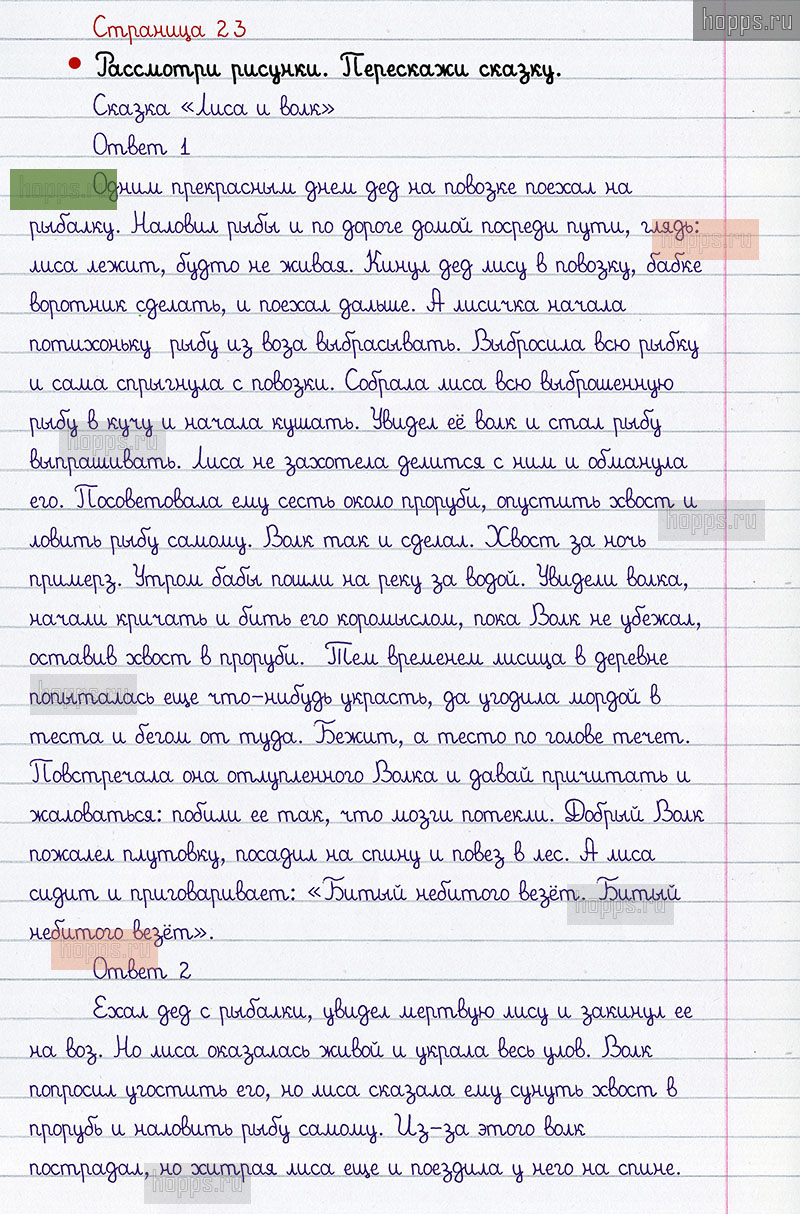 hopps.ru
Страница 23
• Рассмотри рисунки. Перескажи сказку.
Сказка «Лиса и волк»
Ответ 1
Одним прекрасным днем дед на повозке поехал на
рыбалку. Наловил рыбы и по дороге домой посреди пути, глядь:
лиса лежит, будто не живая. Кинул дед лису в повозку, бабке
воротник сделать, и поехал дальше. А лисичка начала
потихоньку рыбу из воза выбрасывать. Выбросила всю рыбку
и сама спрыгнула с повозки. Собрала лиса всю выброшенную
рыбу в кучу и начала кушать. Увидел её волк и стал рыбу
выпрашивать. Лиса не захотела делится с ним и обманула
его. Посоветовала ему сесть около проруби, опустить хвост и
ловить рыбу самому. Волк так и сделал. Хвост за ночь
примерз. Утром бабы пошли на реку за водой. Увидели волка,
начали кричать и бить его коромыслом, пока Волк не убежал,
оставив хвост в проруби. Тем временем лисица в деревне
попыталась еще что-нибудь украсть, да угодила мордой в
теста и бегом от туда. Бежит, а тесто по голове течет.
Повстречала она отлупленного Волка и давай причитать и
жаловаться: побили ее так, что мозги потекли. Добрый Волк
пожалел плутовку, посадил на спину и повез в лес. А лиса
сидит и приговаривает: «Битый небитого везёт. Битый
небитого везёт».
Ответ 2
Ехал дед с рыбалки, увидел мертвую лису и закинул ее
на воз. Но лиса оказалась живой и украла весь улов. Волк
попросил угостить его, но лиса сказала ему сунуть хвост в
прорубь и наловить рыбу самому. Из-за этого волк
пострадал, но хитрая лиса еще и поездила у него на спине.
hopps.ru
hopps.ru
hopps.ru
hopps.ru
hopps.ru
hopps.ru
hopps.ru
hopps.ru